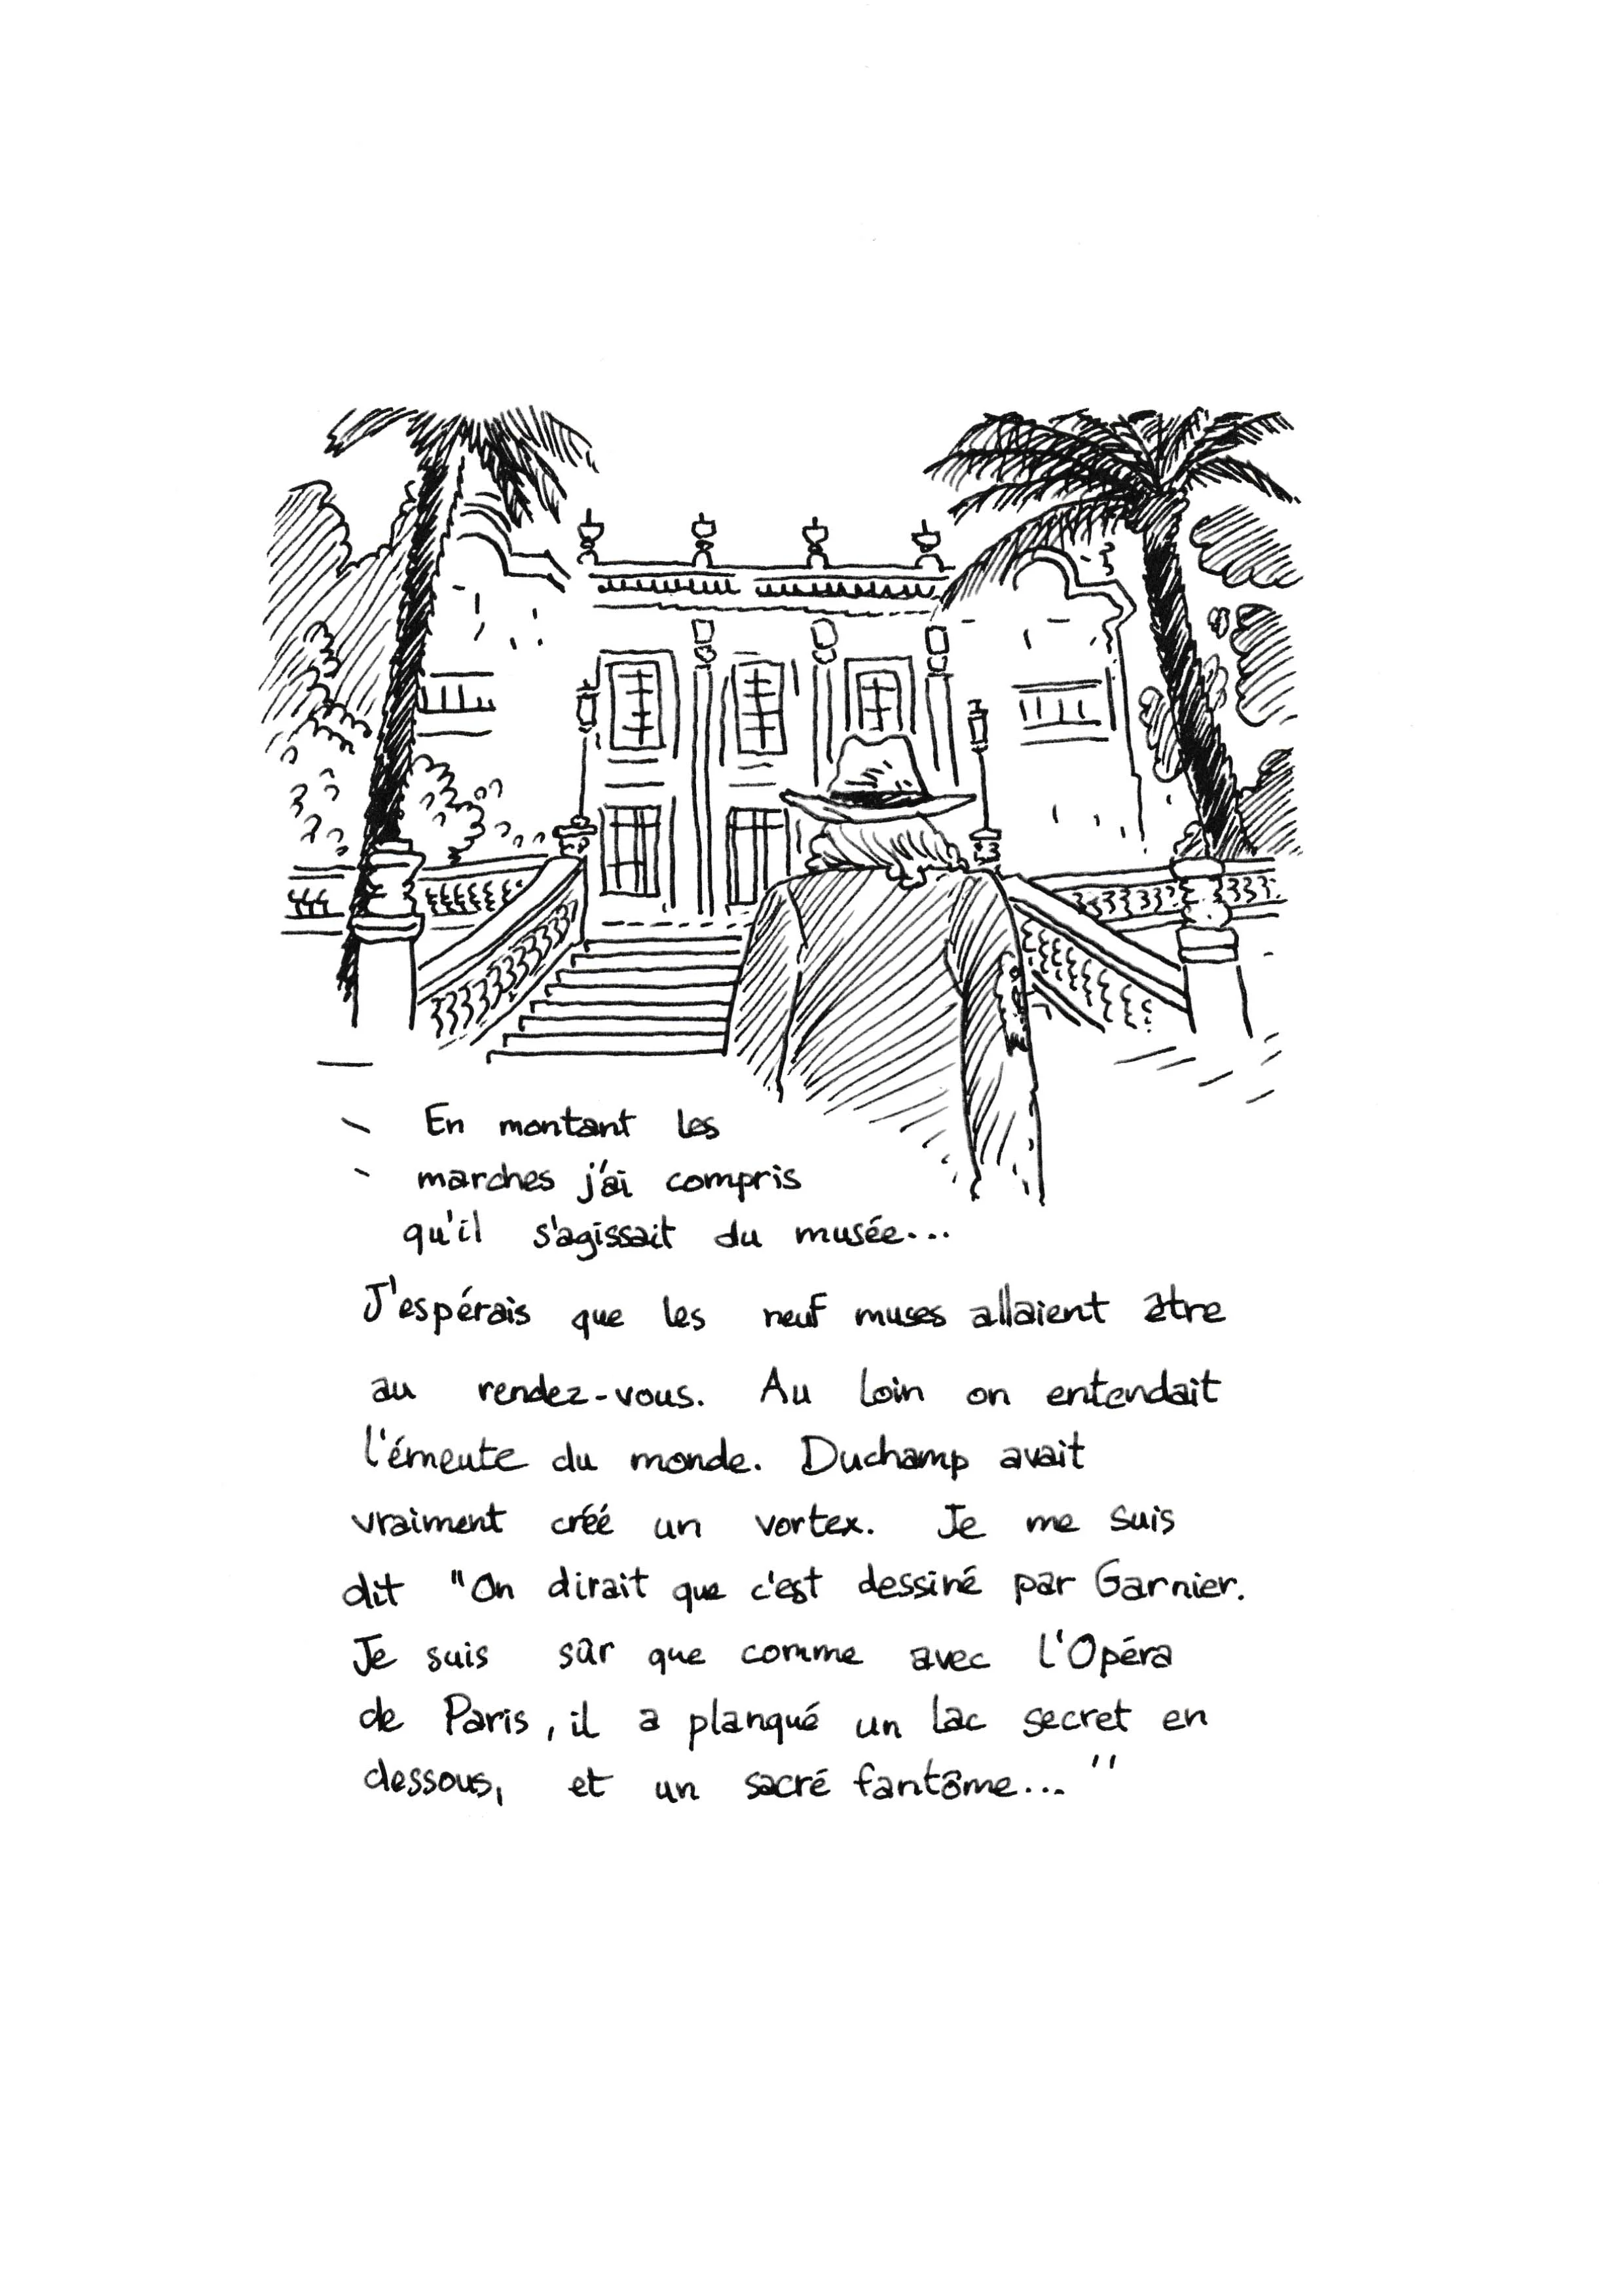 En montant les
marches j'ai compris
qu'il s'agissait du musée...
J'espérais que les neuf muses allaient être
au rendez-vous. Au loin on entendait
l'émeute du monde. Duchamp avait
vraiment créé un vortex. Je me suis
dit "On dirait que c'est dessiné par Garnier.
Je suis sûr que comme avec l'Opéra
de Paris, il a planqué un lac secret en
dessous, et un sacré fantôme... "